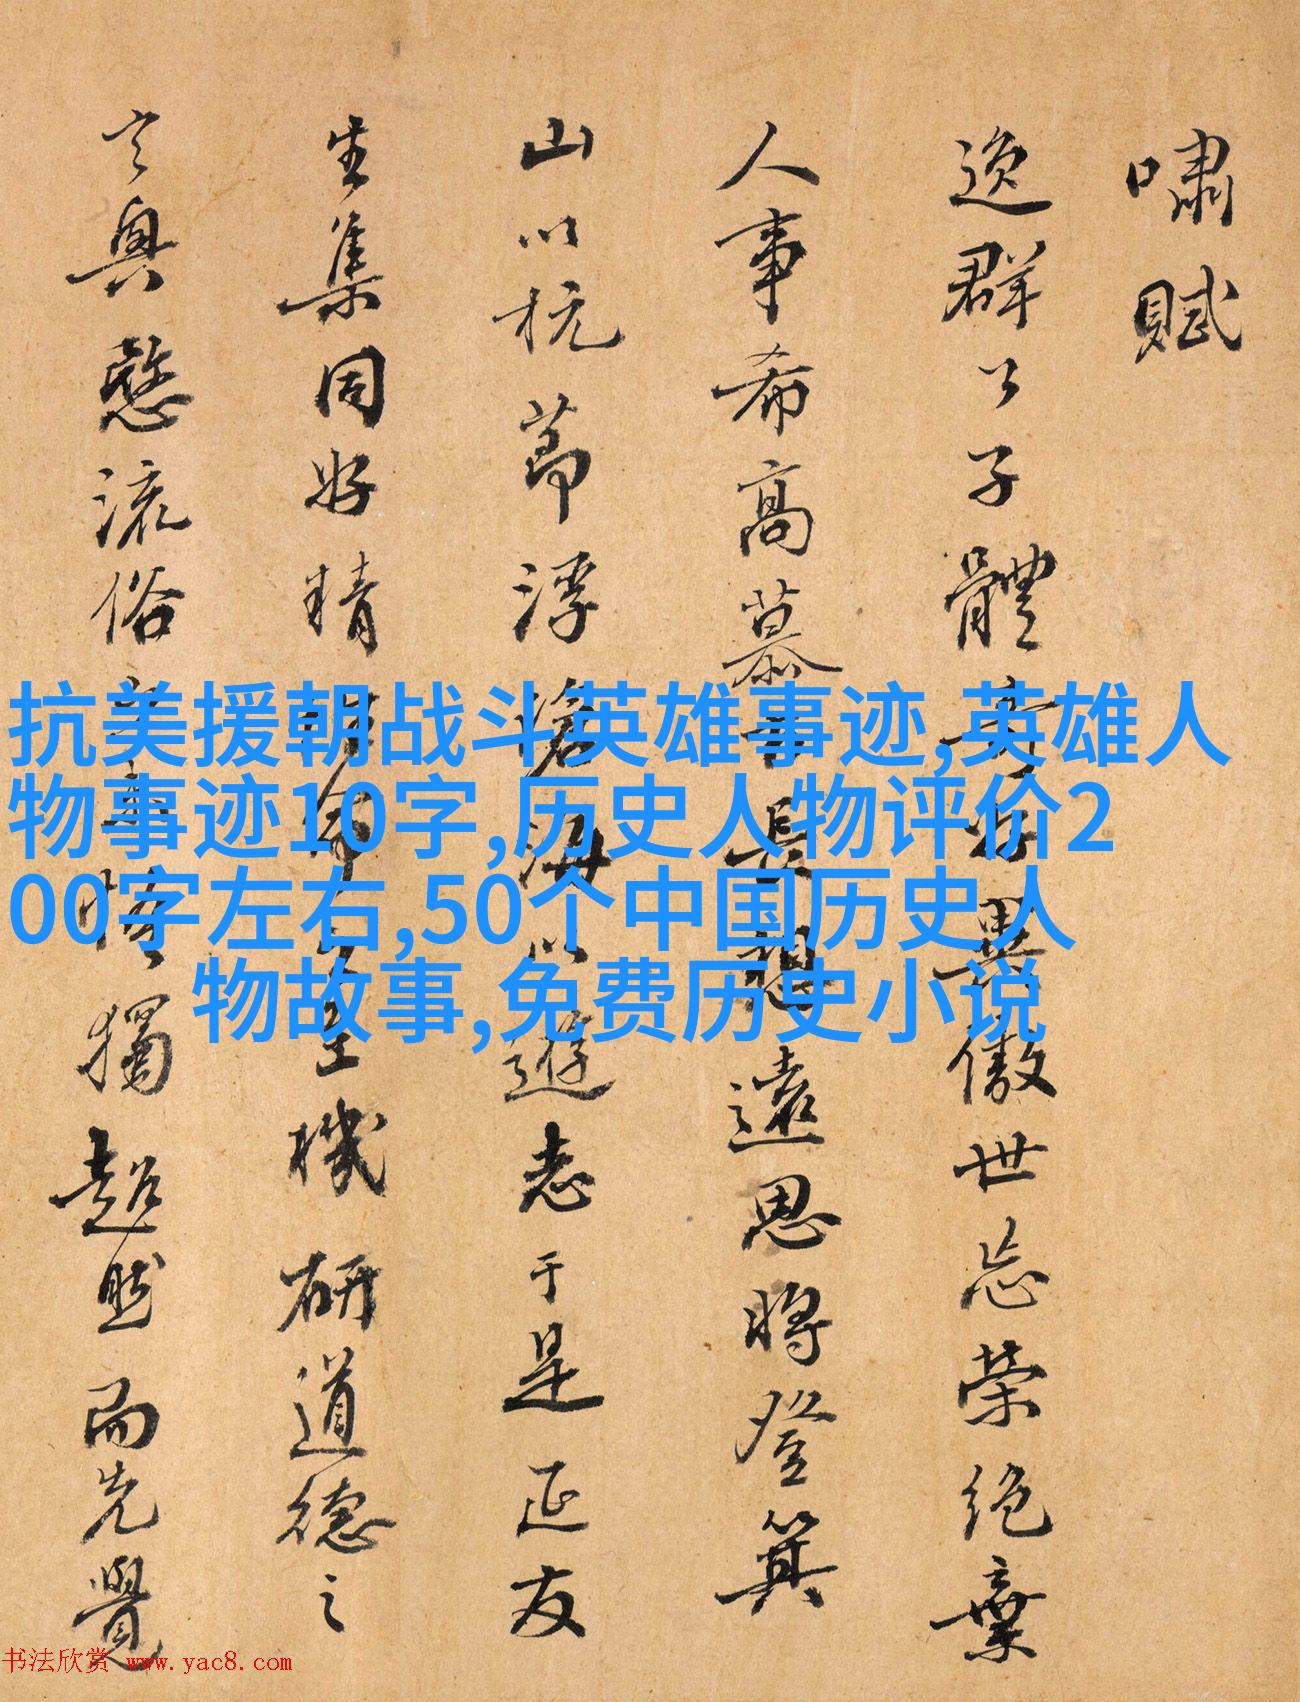 嘯賦
逸群公子體奇好異傲世忘榮絶棄
人事希高慕古長想遠思將登箕
山以抗節浮滄海以遊志于是延友
生集同好精性命之至機研道德之
玄奥愍流俗之未悟獨超然而先覺
抗美援朝战斗英雄事迹,英雄人
物事迹10字,历史人物评价2
00字左右,50个中国历史人
物故事,免费历史小说
书法欣赏 www.yac8.com